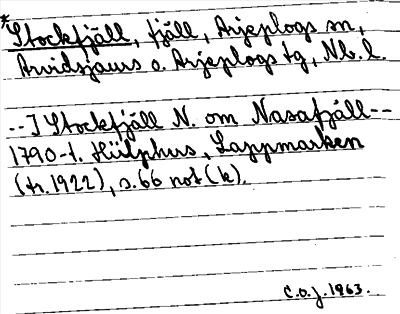 *Stockfjäll, fjäll, Arjeplogs sn,
Arvidsjaurs o. Arjeplogs tg, Nb. l.
--] Stockfjäll N. om Nasafjäll--
1790-t. Hülphers, Lappmarken
(tr. 1922), s. 66 not (k).
C.O.J. 1963.